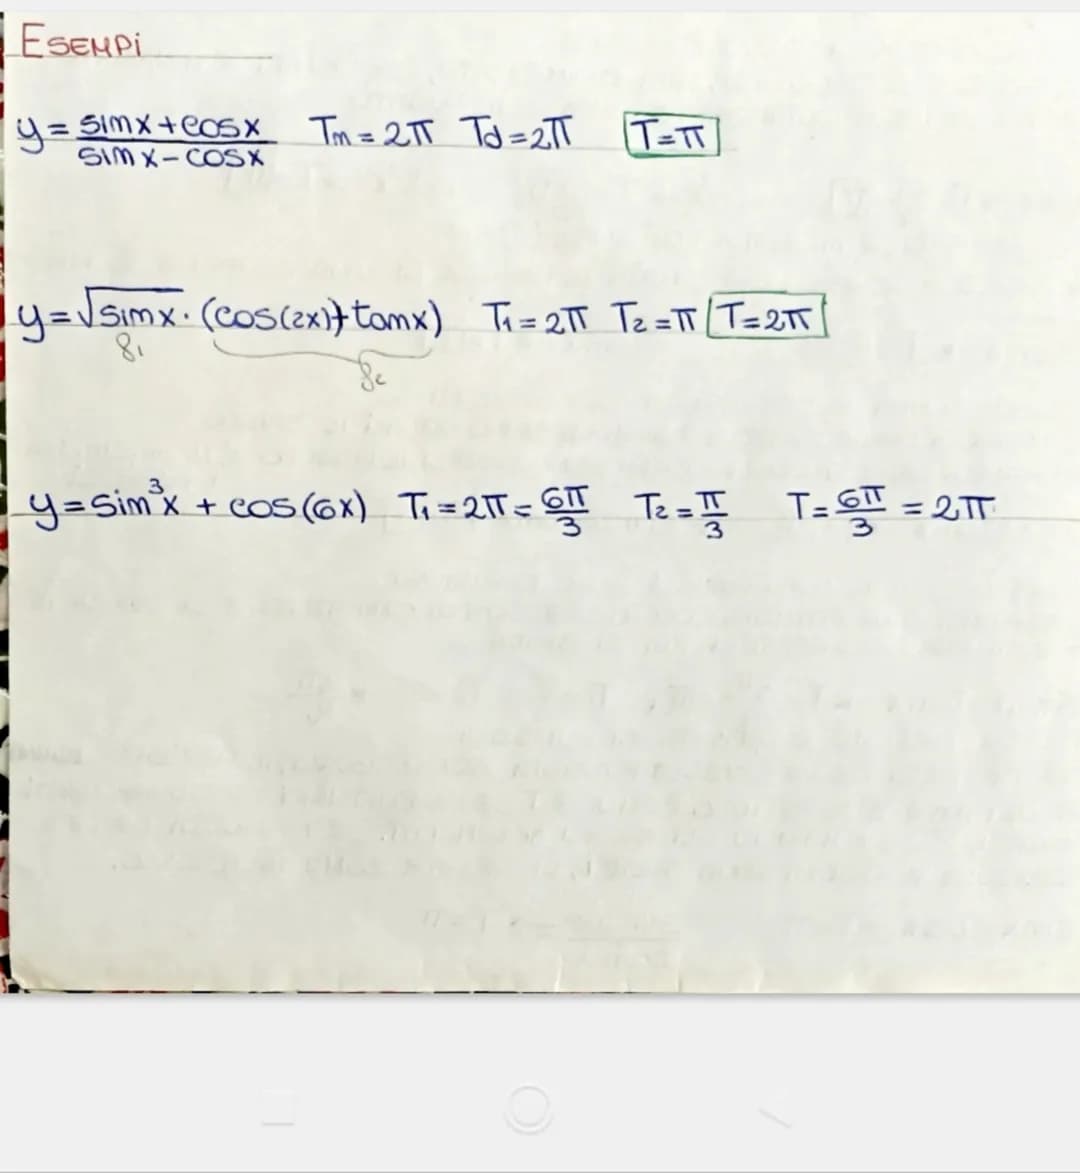 ESEMPI
y = sinx+cosx / sinx-cosx Tn = 2π Td = 2π T=π
y = √sinx · (cos(2x)+tanx) T1 = 2π T2 = π T=2π
f1
f2
y = sin³x + cos(6x) T1 = 2π = 6π/3 T2 = π/3 T = 6π/3 = 2π